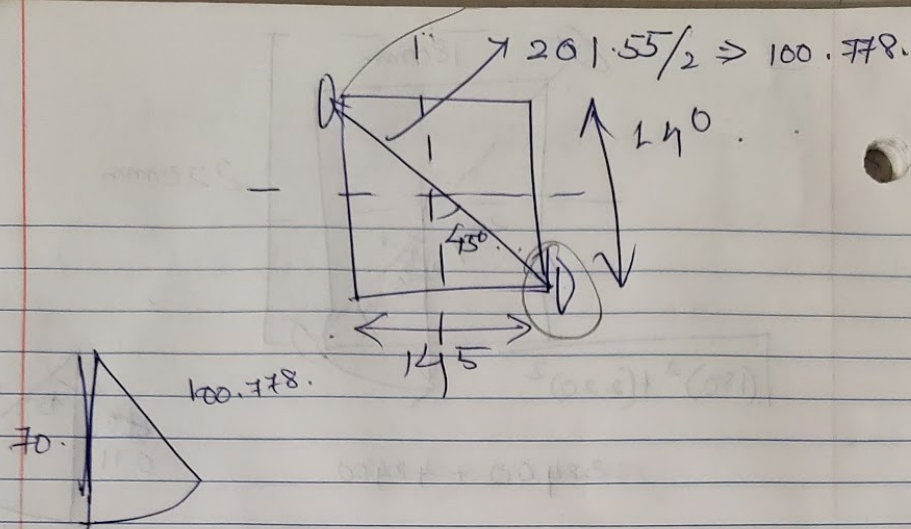 201.55/2 ⇒ 100.778.
140.
45°
145
100.778.
70.